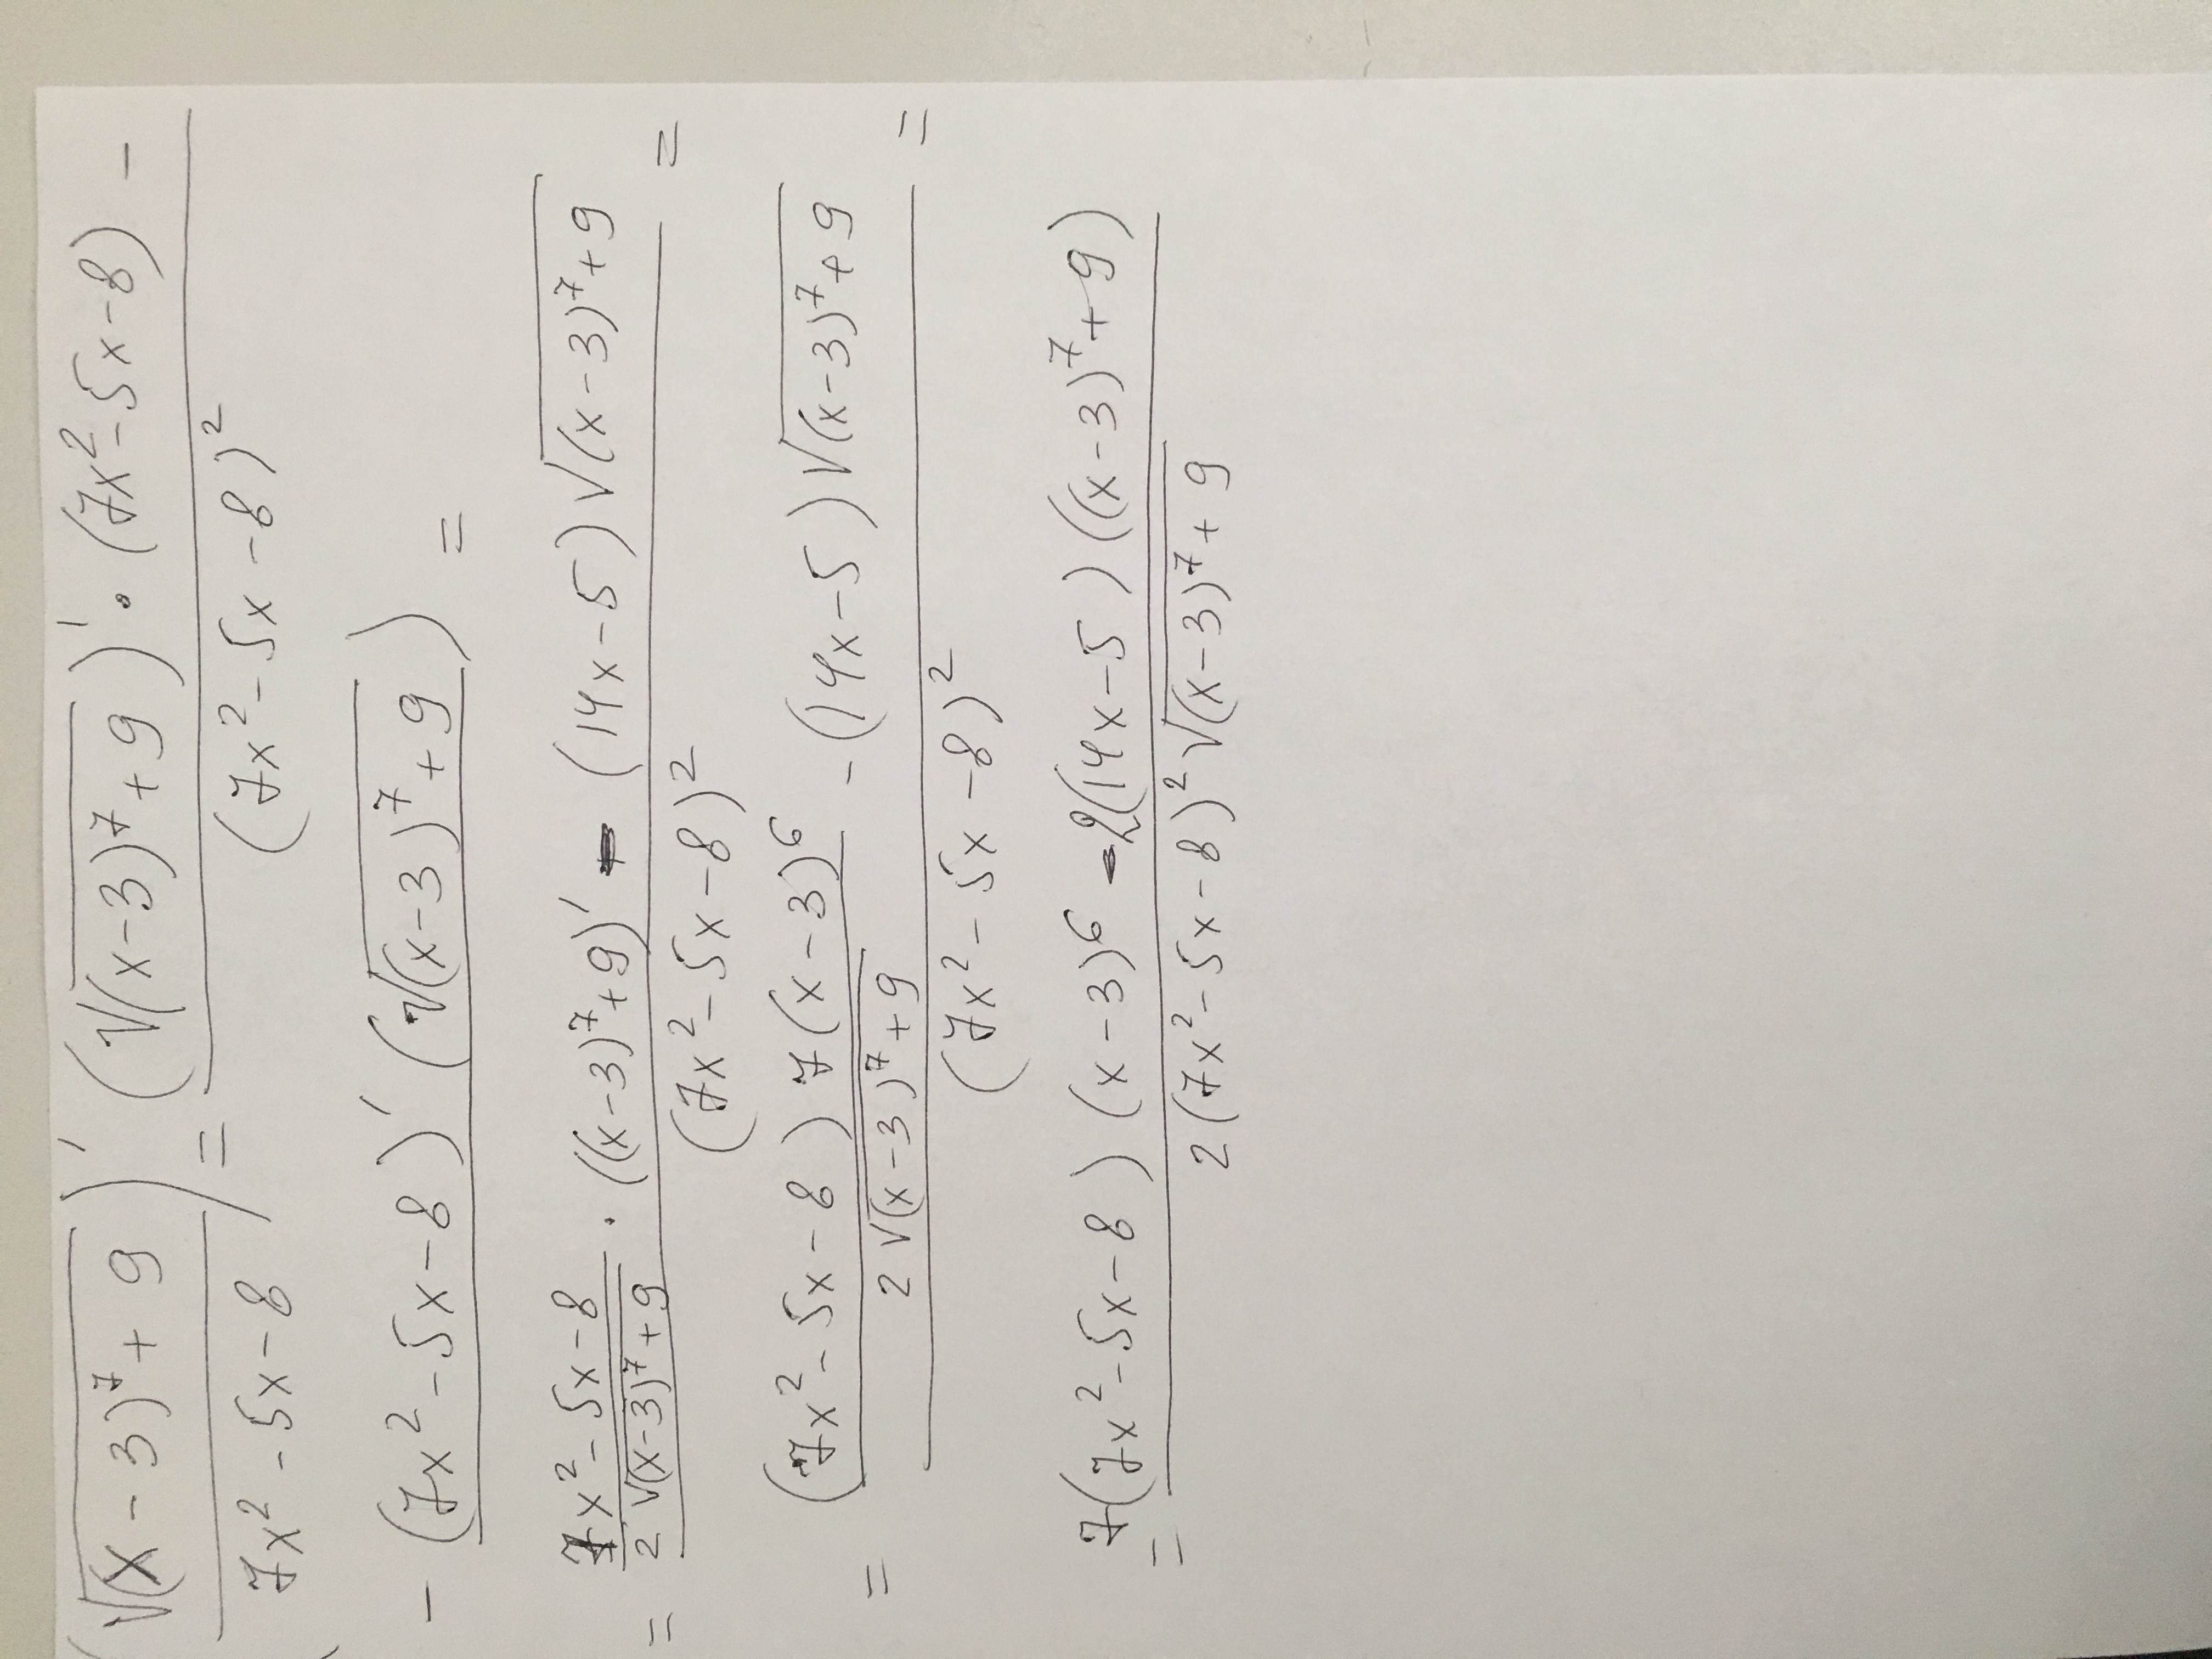 (√((x-3)⁷+9) / (7x²-5x-8))' = ((√((x-3)⁷+9))' · (7x²-5x-8) -
- (7x²-5x-8)' (√((x-3)⁷+9)) / (7x²-5x-8)² =
= ((7x²-5x-8) / (2√((x-3)⁷+9)) · ((x-3)⁷+9)' - (14x-5)√((x-3)⁷+9)) / (7x²-5x-8)² =
= ((7x²-5x-8)7(x-3)⁶ / (2√((x-3)⁷+9)) - (14x-5)√((x-3)⁷+9)) / (7x²-5x-8)² =
= (7(7x²-5x-8)(x-3)⁶ - 2(14x-5)((x-3)⁷+9)) / (2(7x²-5x-8)²√((x-3)⁷+9))